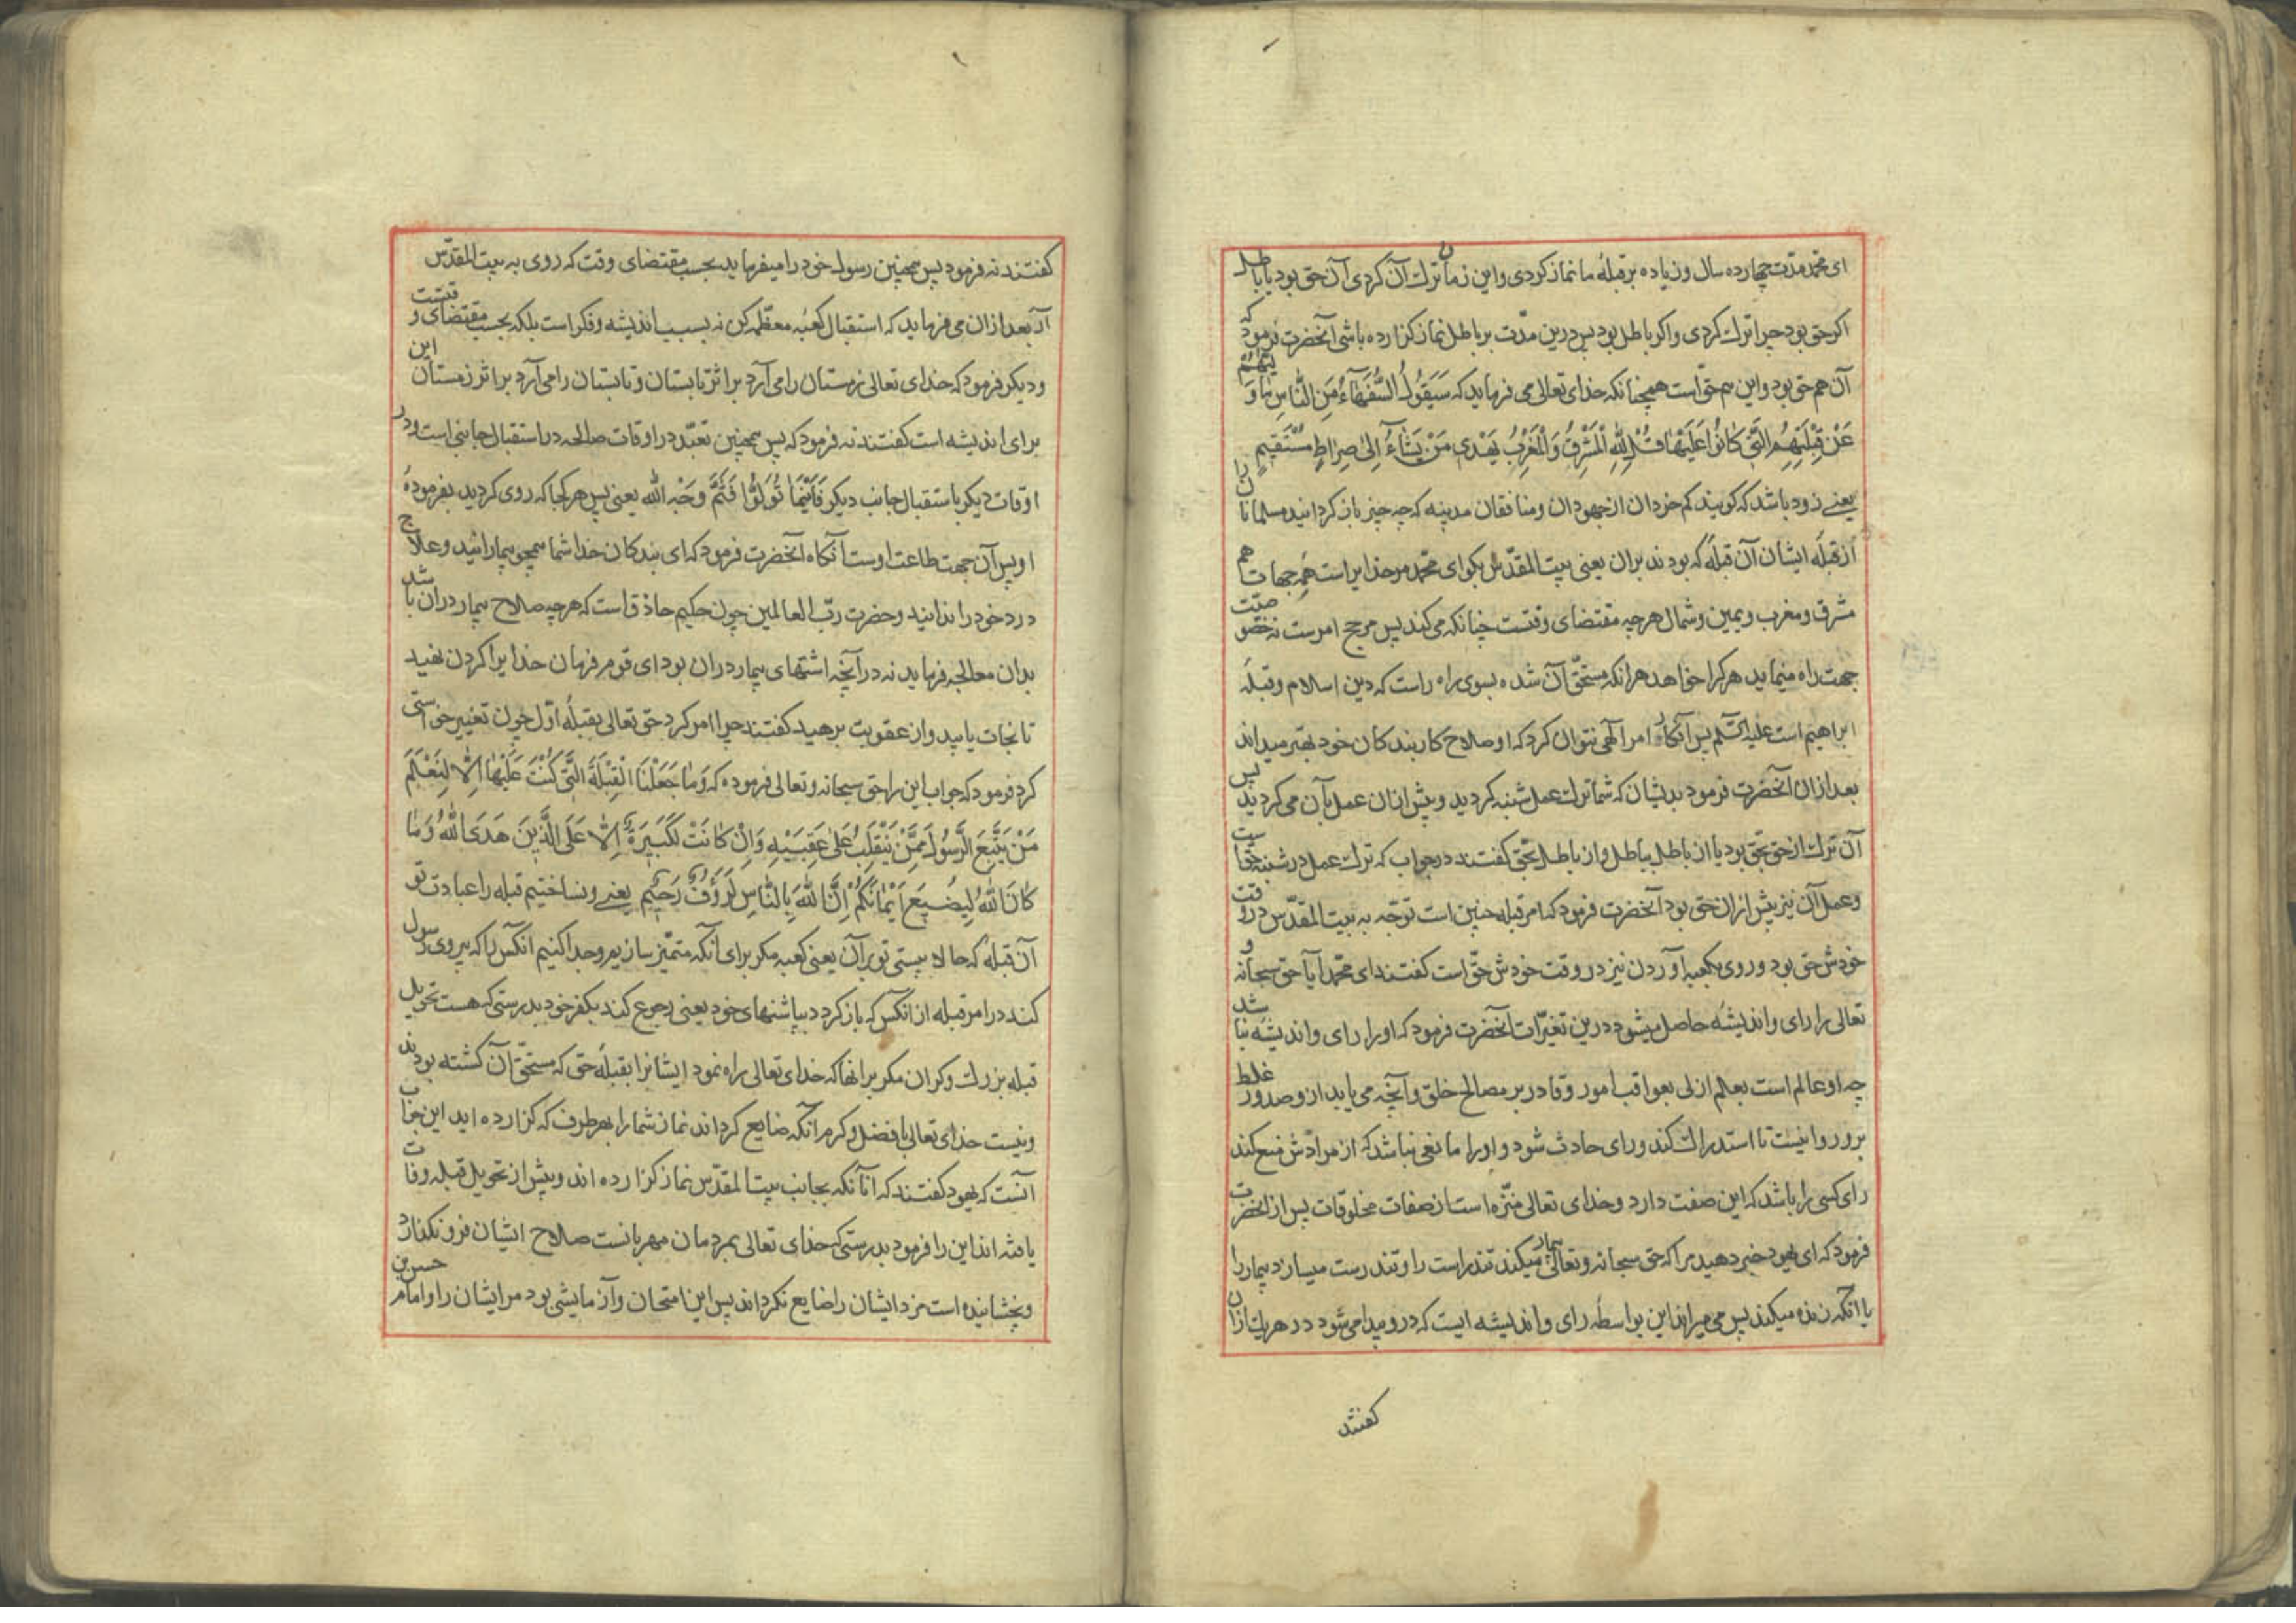 ای محمد مدت چهارده سال و زیاده بر قبلهٔ ما نماز کردی و این زمان ترک آن کردی آن حق بود یا باطل
اکر حق بود چرا ترک کردی و اکر باطل بود پس درین مدّت بر باطل نماز کزارده باشی آنحضرت فرمود که
آن هم حق بود و این هم حقّ است همچنانکه خدای تعالی می فرماید که سَیَقُولُ السُّفَهَآءُ مِنَ النَّاسِ مَا وَلّٰیهُمْ
عَنْ قِبْلَتِهِمُ الَّتِی کَانُوا عَلَیْهَا قُلْ لِلّٰهِ الْمَشْرِقُ وَالْمَغْرِبُ یَهْدِی مَنْ یَشَآءُ اِلیٰ صِرَاطٍ مُسْتَقِیمٍ
یعنے زود باشد که کویند کم خردان از جهودان و منافقان مدینه که چه چیز باز کردانید مسلمانان را
از قبلهٔ ایشان آن قبلهٔ که بودند بران یعنی بیت المقدّس بکو ای محمّد مر خدایراست همهٔ جهات هم
مشرق و مغرب و یمین و شمال هر چه مقتضای وقتست چنانکه می کند پس مرجح امرست نه خصوصیّت
جهت راه مینماید هر کرا خواهد هر انکه مستحقّ آن شده بسوی راه راست که دین اسلام و قبلهٔ
ابراهیم است علیه السّلم پس آنکار امر آلهی نتوان کرد که او صلاح کار بندکان خود بهتر میداند
بعد ازان آنحضرت فرمود بدیشان که شما ترک عمل شنبه کردید و پیش ازان عمل بآن می کردید پس
آن ترک از حق بحق بود یا ان باطل بباطل و از باطل بحق کفتند در جواب که ترک عمل در شنبه حقاست
و عمل آن نیز پیش ازان حق بود آنحضرت فرمود که امر قبله چنین است توجّه به بیت المقدّس در وقت
خودش حق بود و روی بکعبه آوردن نیز در وقت خودش حقّ است کفتند ای محمّد آیا حق سبحانه و
تعالی را رای و اندیشهٔ حاصل میشود درین تغیّرات آنحضرت فرمود که اورا رای و اندیشه نباشد
چه او عالم است بعلم ازلی بعواقب امور و قادر بر مصالح خلق و آنچه می باید از و صدور غلط
برو روا نیست تا استدراک کند و رای حادث شود و اورا مانعی نباشد که از مرادش منع کند
رای کسی را باشد که این صفت دارد و خدای تعالی منزّه است از صفات مخلوقات پس از آنحضرت
فرمود که ای یهود خبر دهید مرا که حق سبحانه و تعالی بیمار میکند تندراست را و تندرست میسازد بیمار را
یا انکه زنده میکند پس می میراند این بواسطهٔ رای و اندیشه ایست که درو پیدا می شود در هر یک ازان
کفتند
کفتند نه فرمود پس همچنین رسول خود را میفرماید بحسب مقتضای وقت که روی به بیت المقدّس
آر بعد ازان می فرماید که استقبال کعبهٔ معظّمه کن نه بسبب اندیشه و فکر است بلکه بحسب مقتضای وقتست
و دیکر فرمود که خدای تعالی زمستان را می آرد بر اثر تابستان و تابستان را می آرد بر اثر زمستان این
برای اندیشه است کفتند نه فرمود که پس همچنین تعبّد در اوقات صالحه در استقبال جانبی است و در
اوقات دیکر باستقبال جانب دیکر فَاَیْنَمَا تُوَلُّوا فَثَمَّ وَجْهُ اللّٰه یعنی پس هر کجا که روی کردید بفرمودهٔ
او پس آن جهت طاعت اوست آنکاه آنحضرت فرمود که ای بندکان خدا شما همچو بیمارانید و علاج
درد خود را ندانید و حضرت ربّ العالمین چون حکیم حاذق است که هر چه صلاح بیمار دران باشد
بدان معالجه فرماید نه در آنچه اشتهای بیمار دران بود ای قوم فرمان خدایرا کردن نهید
تا نجات یابید و از عقوبت برهید کفتند چرا امر کرد حق تعالی بقبلهٔ اوّل چون تغییر خواستی
کرد فرمود که جواب این را حق سبحانه و تعالی فرموده که وَمَا جَعَلْنَا الْقِبْلَةَ الَّتِی کُنْتَ عَلَیْهَا اِلّا لِنَعْلَمَ
مَنْ یَتَّبِعُ الرَّسُولَ مِمَّنْ یَنْقَلِبُ عَلیٰ عَقِبَیْهِ وَاِنْ کَانَتْ لَکَبِیرَةً اِلّا عَلَی الَّذِینَ هَدَی اللّٰهُ وَمَا
کَانَ اللّٰهُ لِیُضِیعَ اِیْمَانَکُمْ اِنَّ اللّٰهَ بِالنَّاسِ لَرَؤُفٌ رَحِیْم یعنے و نساختیم قبله را عبادت تو
آن قبلهٔ که حالا بیستی تو بر آن یعنی کعبه مکر برای آنکه متمیّز سازیم و جدا کنیم انکس را که پیروی رسول
کند در امر قبله از انکس که باز کردد بپاشنهای خود یعنی رجوع کند بکفر خود بدرستی که هست تحویل
قبله بزرک و کران مکر بر انها که خدای تعالی راه نمود ایشانرا بقبلهٔ حق که مستحقّ آن کشته بودند
و نیست خدای تعالی با فضل و کرم آنکه ضایع کرداند نماز شما را بهر طرف که کزارده اید این جواب
آنست که یهود کفتند که آنانکه بجانب بیت المقدّس نماز کزارده اند و پیش از تحویل قبله وفات
یافته اند این را فرمود بدرستی که خدای تعالی بمردمان مهربانست صلاح ایشان فرو نکذارد
و بخشاینده است مزد ایشان را ضایع نکرداند پس این امتحان و آزمایشی بود مر ایشان را و امام حسن بن